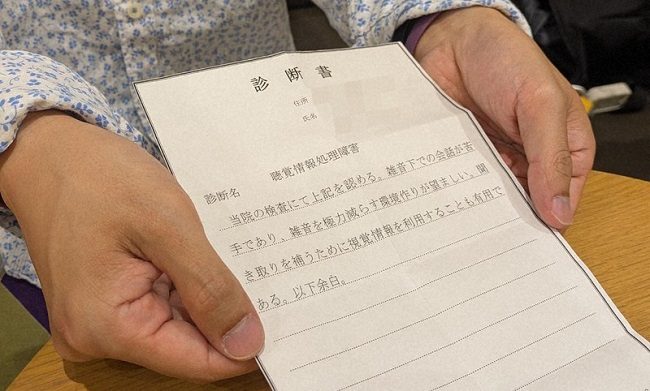 診断書
住所
氏名
診断名 聴覚情報処理障害
当院の検査にて上記を認める。雑音下での会話が苦
手であり、雑音を極力減らす環境作りが望ましい。聞
き取りを補うために視覚情報を利用することも有用で
ある。以下余白。